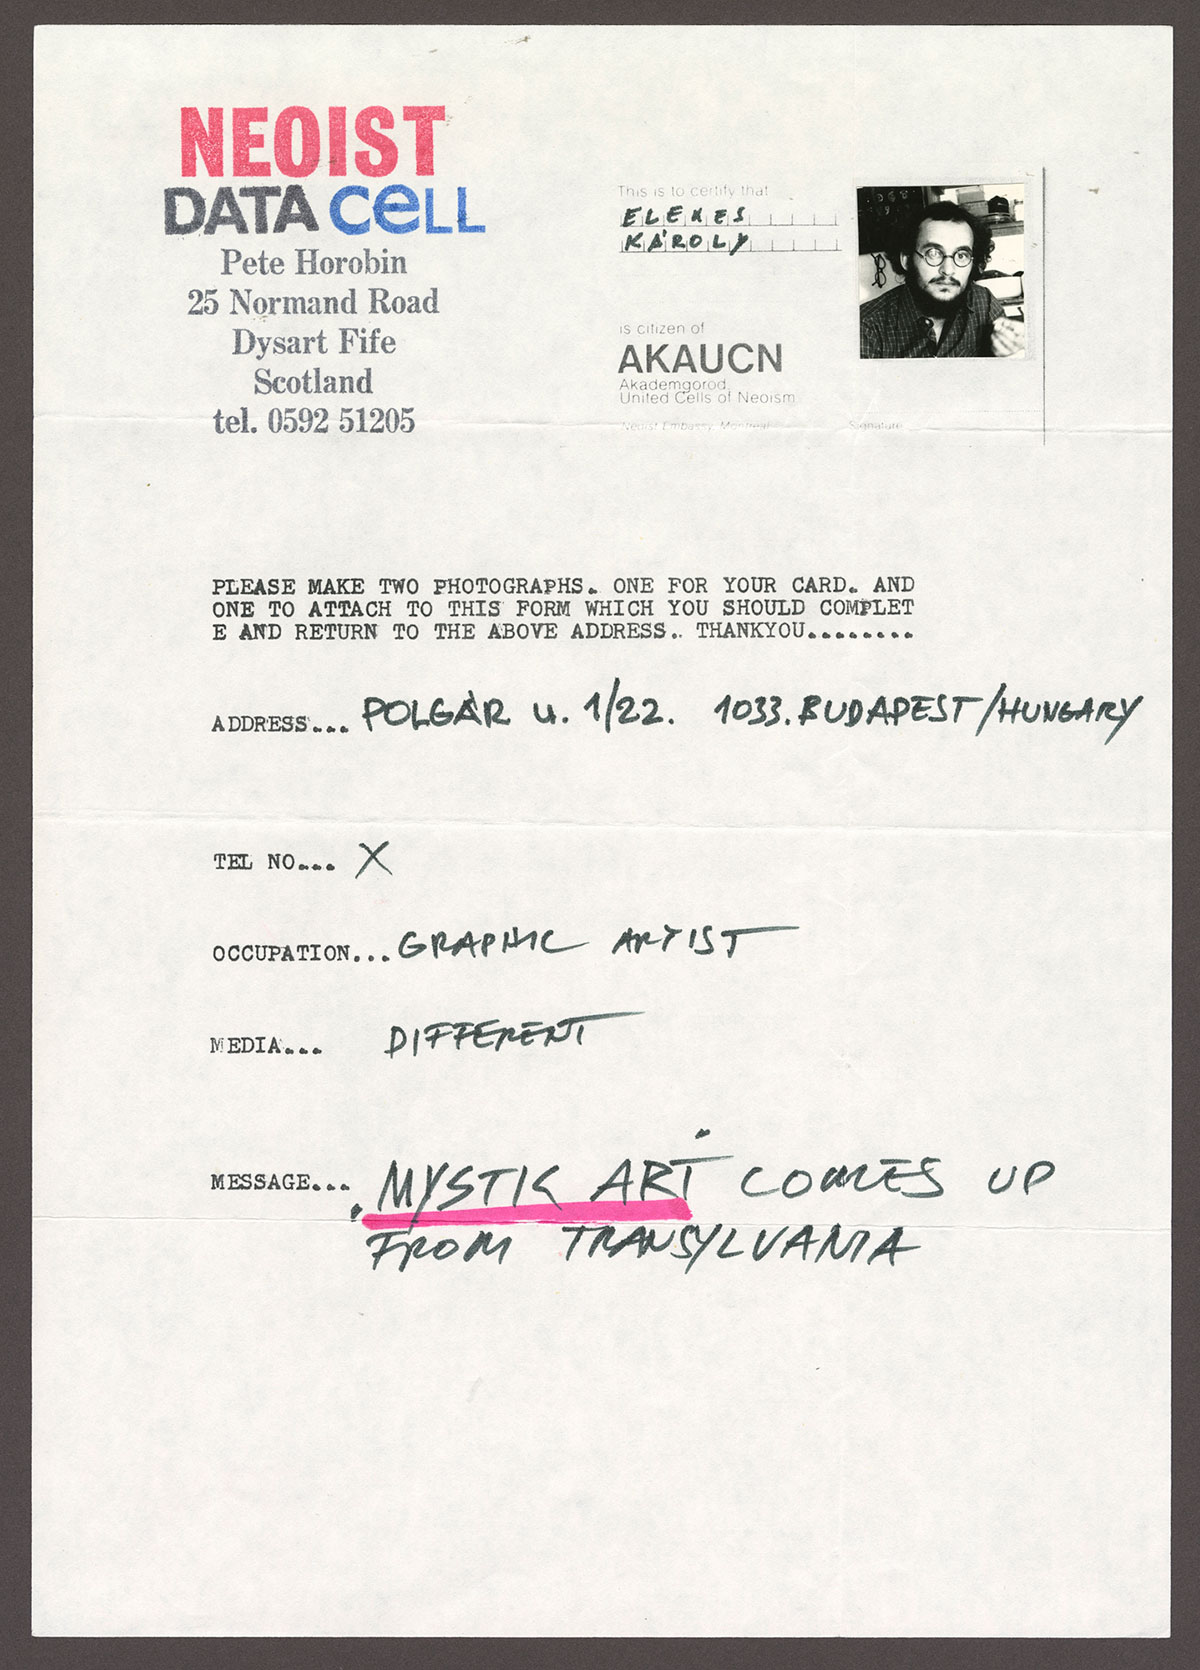 NEOIST
DATA CELL
Pete Horobin
25 Normand Road
Dysart Fife
Scotland
tel. 0592 51205
This is to certify that
ELEKES
KÁROLY
is citizen of
AKAUCN
Akademgorod,
United Cells of Neoism
Neoist Embassy, Montreal
Signature
PLEASE MAKE TWO PHOTOGRAPHS. ONE FOR YOUR CARD. AND
ONE TO ATTACH TO THIS FORM WHICH YOU SHOULD COMPLET
E AND RETURN TO THE ABOVE ADDRESS.. THANKYOU........
ADDRESS... POLGÁR u. 1/22. 1033. BUDAPEST/HUNGARY
TEL NO.... X
OCCUPATION... GRAPHIC ARTIST
MEDIA... DIFFERENT
MESSAGE... MYSTIC ART COMES UP
FROM TRANSYLVANIA